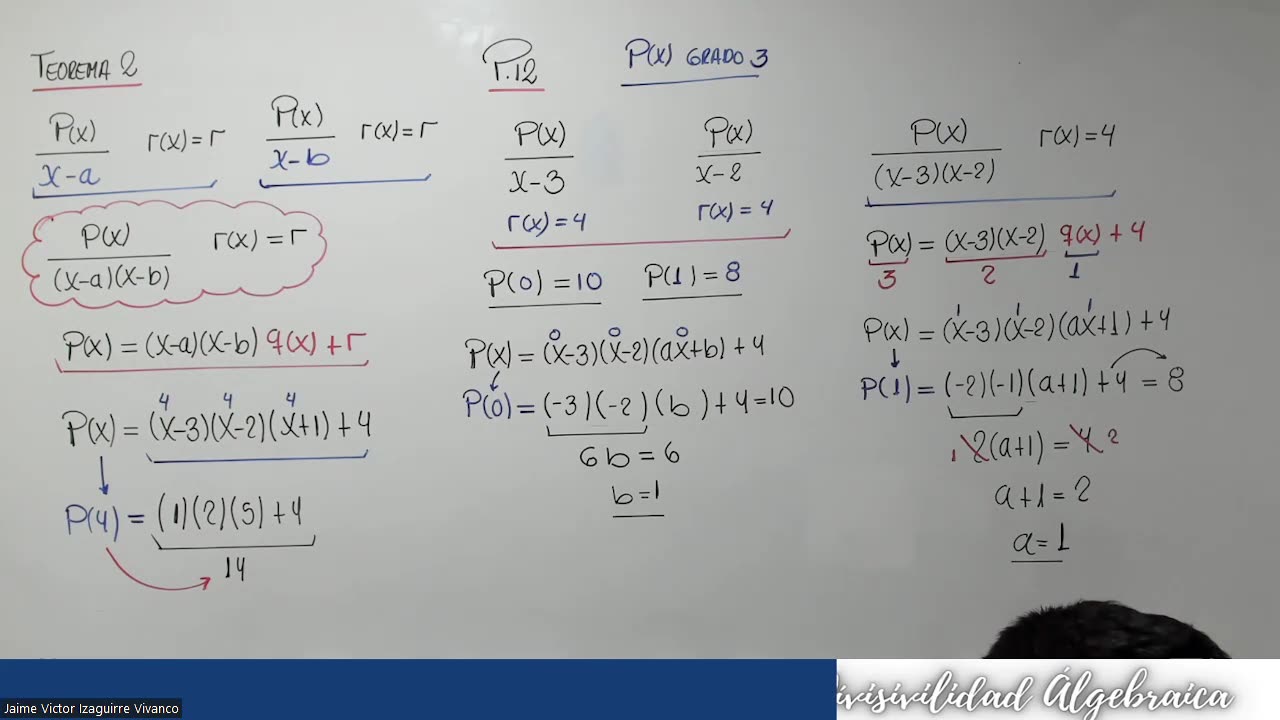 TEOREMA 2
P(x)/(x-a) r(x)=r P(x)/(x-b) r(x)=r
P(x)/((x-a)(x-b)) r(x)=r
P(x) = (x-a)(x-b) q(x) + r
4 4 4
P(x) = (x-3)(x-2)(x+1) + 4
P(4) = (1)(2)(5) + 4
14
P.12 P(x) GRADO 3
P(x)/(x-3) P(x)/(x-2)
r(x)=4 r(x)=4
P(0)=10 P(1)=8
0 0 0
P(x) = (x-3)(x-2)(ax+b) + 4
P(0) = (-3)(-2)(b) + 4 = 10
6b = 6
b=1
P(x)/((x-3)(x-2)) r(x)=4
P(x) = (x-3)(x-2) q(x) + 4
3 2 1
1 1 1
P(x) = (x-3)(x-2)(ax+1) + 4
P(1) = (-2)(-1)(a+1) + 4 = 8
1 2(a+1) = 4 2
a+1 = 2
a = 1
Jaime Victor Izaguirre Vivanco
ivisivilidad Álgebraica